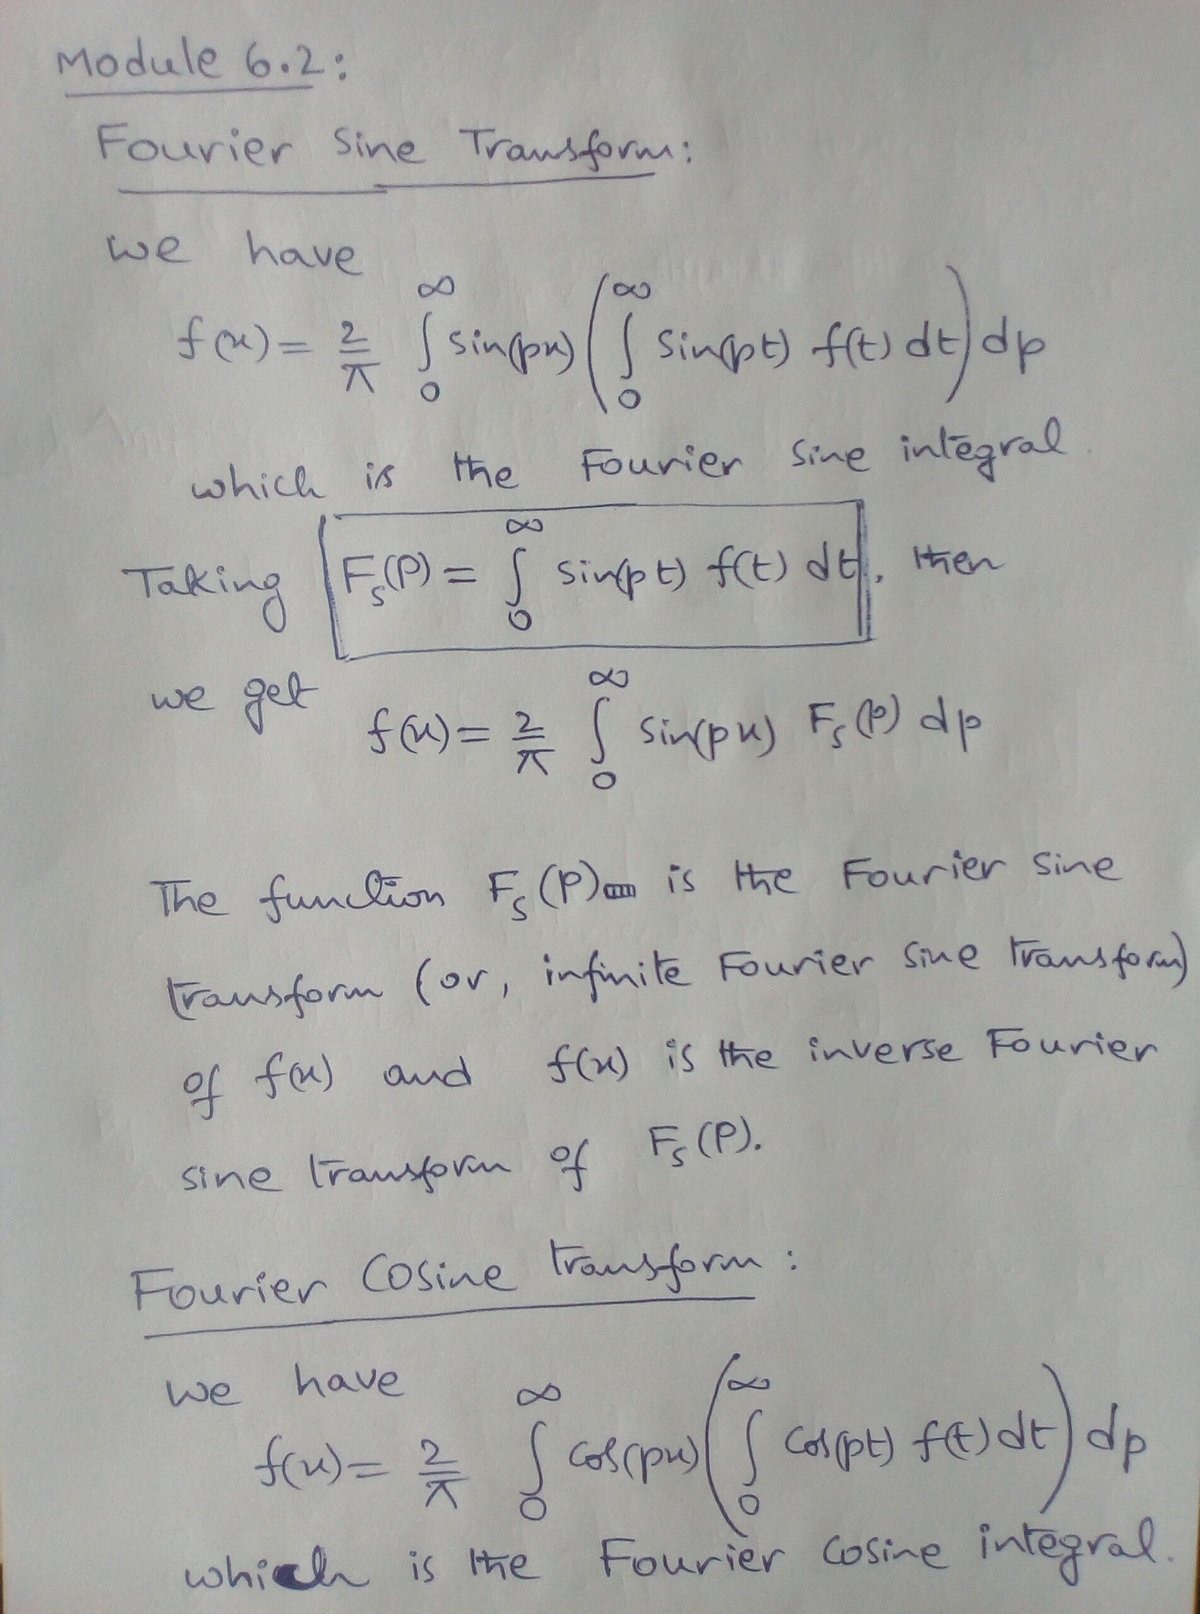 Module 6.2:
Fourier Sine Transform:
we have
f(x) = 2/π ∫₀^∞ sin(px) (∫₀^∞ sin(pt) f(t) dt) dp
which is the Fourier sine integral
Taking F_s(P) = ∫₀^∞ sin(pt) f(t) dt, then
we get
f(x) = 2/π ∫₀^∞ sin(px) F_s(p) dp
The function F_s(P) is the Fourier sine
transform (or, infinite Fourier sine transform)
of f(x) and f(x) is the inverse Fourier
sine transform of F_s(P).
Fourier Cosine transform:
we have
f(x) = 2/π ∫₀^∞ cos(px) (∫₀^∞ cos(pt) f(t) dt) dp
which is the Fourier cosine integral.